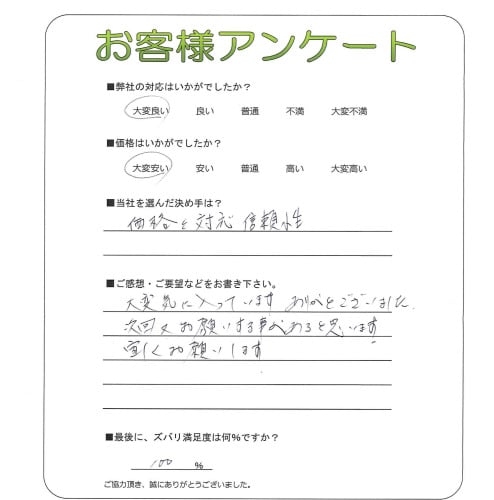 お客様アンケート
■弊社の対応はいかがでしたか？
大変良い 良い 普通 不満 大変不満
■価格はいかがでしたか？
大変安い 安い 普通 高い 大変高い
■当社を選んだ決め手は？
価格と対応 信頼性
■ご感想・ご要望などをお書き下さい。
大変気に入っています ありがとうございました。
次回又お願いする事があると思います
宜しくお願いします
■最後に、ズバリ満足度は何%ですか？
100 %
ご協力頂き、誠にありがとうございました。